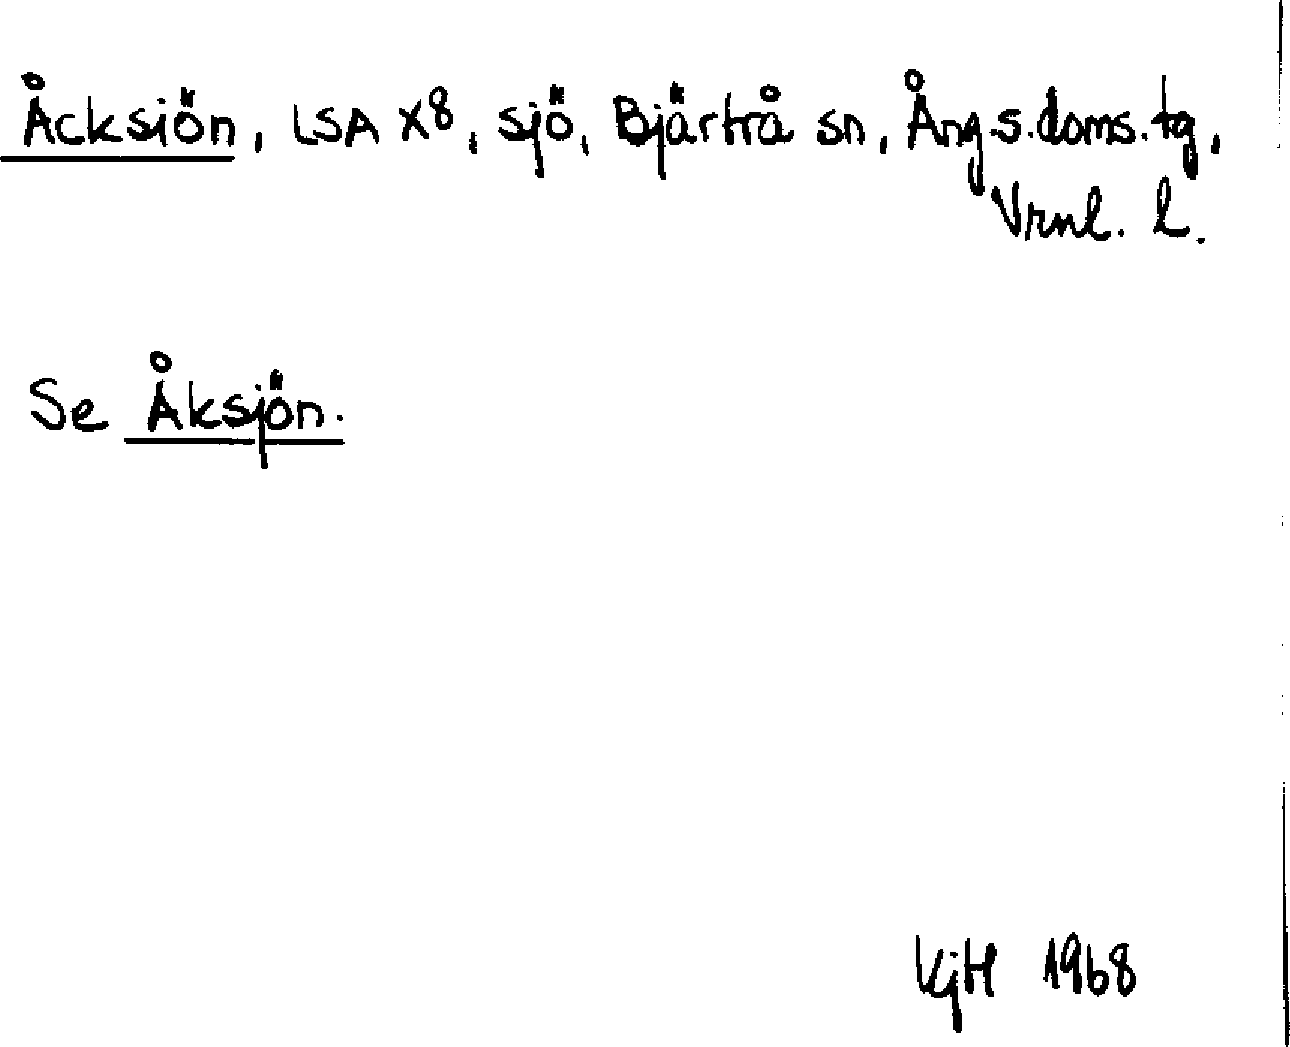 Åcksiön, LSA X8, sjö, Bjärtrå sn, Ång.s.doms.tg,
Vrnl. l.
Se Åksjön.
KjH 1968